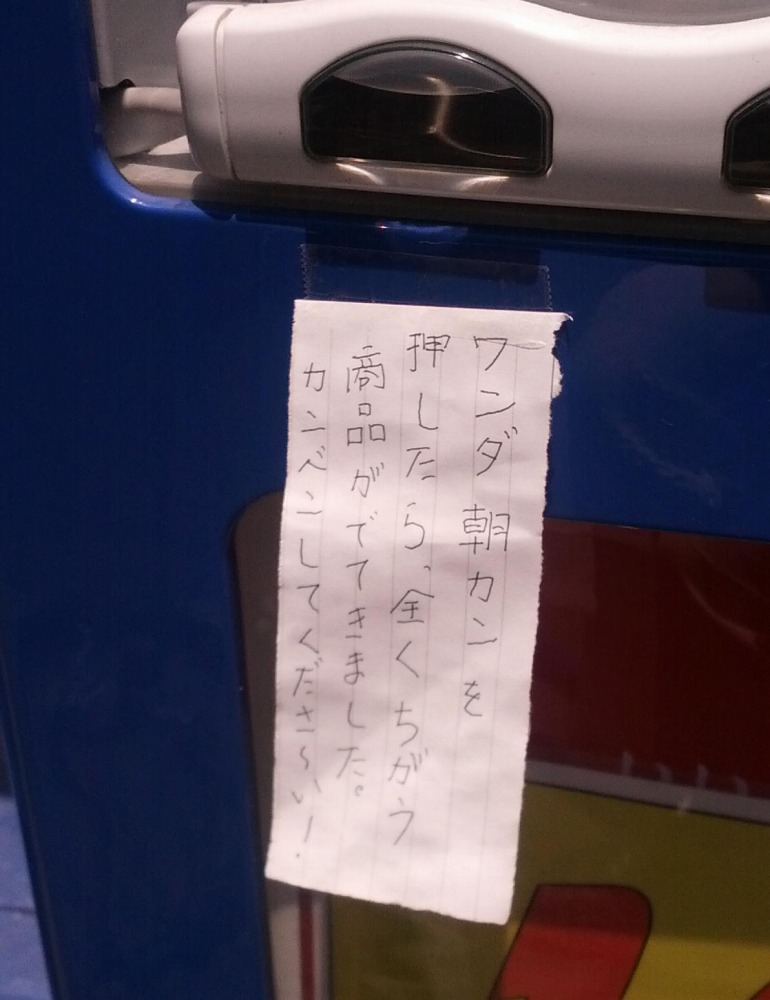 ワンダ 朝カンを
押したら、全くちがう
商品がでてきました。
カンベンしてくださ〜い!